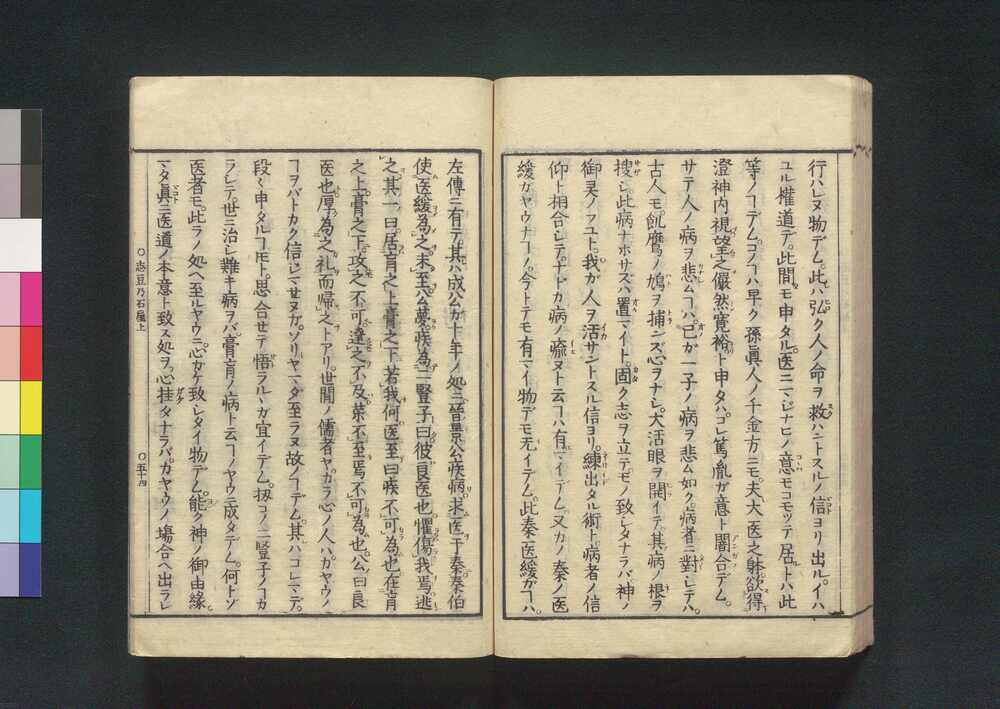 行ハレヌ物デム。此ハ弘ク人ノ命ヲ救ハントスルノ信ヨリ出ル。イハ
ユル權道デ。此間モ申タル。医ニマジナヒノ意モコモツテ居トハ此
等ノヿデム。コノヿハ早ク孫眞人ノ千金方ニモ。夫大医之躰。欲得
澄神内視。望之儼然。寛裕ト申タハ。コレ篤胤ガ意ト闇合デム。
サテ人ノ病ヲ悲ムヿハ。己カ一子ノ病ヲ悲ム如ク。病者ニ對レテハ
古人モ飢鷹ノ鳩ヲ捕ンズ心ヲナレ。大活眼ヲ開イテ其病ノ根ヲ
捜シ。此病ナホサズハ置マイト固ク志ヲ立テモノ致シタナラバ。神ノ
御㚑ノフユト。我カ人ヲ活サントスル信ヨリ。練出タル術ト病者ノ信
仰ト相合レテ。ナトカ病ノ癒ヌト云ヿハ有マイデム。又カノ秦ノ医
緩ガヤウナヿノ。今トテモ有マイ物デモ无イデム。此秦医緩ガヿハ。
左傳ニ有テ。其ハ成公カ十年ノ処ニ。晉景公疾病。求医于秦。秦伯
使医緩為之。未至。公夢疾為二豎子。曰彼良医也。懼傷我。焉逃
之。其一曰。居肓之上膏之下。若我何。医至曰。疾不可為也。在肓
之上。膏之下。攻之不可。達之不及。藥不至焉。不可為也。公曰。良
医也。厚為之礼而帰之トアリ。世間ノ儒者ヤカラ心ノ人ハ。カヤウノ
ヿヲバトカク信シマセヌガ。ソリヤマダ至ラヌ故ノヿデム。其ハコレマデ。
段〻申タルヿモト。思合セテ悟ラルヽガ宜イデム。扨コノ二豎子ノヿカ
ラレテ。世ニ治シ難キ病ヲバ。膏肓ノ病ト云ヿノヤウニ成タデム。何トゾ
医者モ。此ラノ処ヘ至ルヤウニ。心ガケ致シタイ物デム。能ク神ノ御由縁
マタ眞ニ医道ノ本意ト致ス処ヲ。心挂タナラバ。カヤウノ場合ヘ出ラレ
○志豆乃石屋上
○五十四